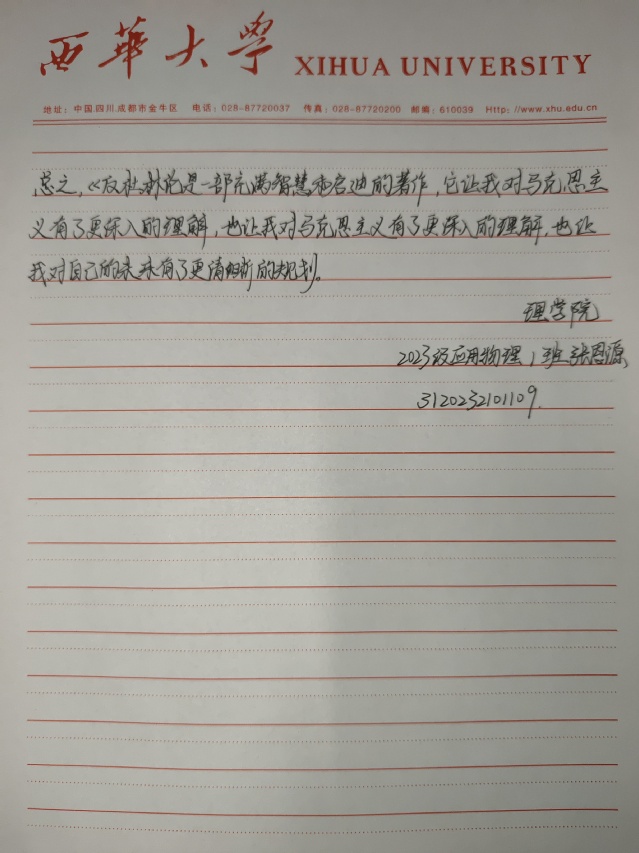 西華大學 XIHUA UNIVERSITY
地址：中国.四川.成都市金牛区 电话：028-87720037 传真：028-87720200 邮编：610039 Http：//www.xhu.edu.cn
总之，《反杜林论是一部充满智慧和启迪的著作，它让我对马克思主
义有了更深入的理解，也让我对马克思主义有了更深入的理解，也让
我对自己的未来有了更清晰的规划。
理学院
2023级应用物理1班 张恩源
3120232101109.